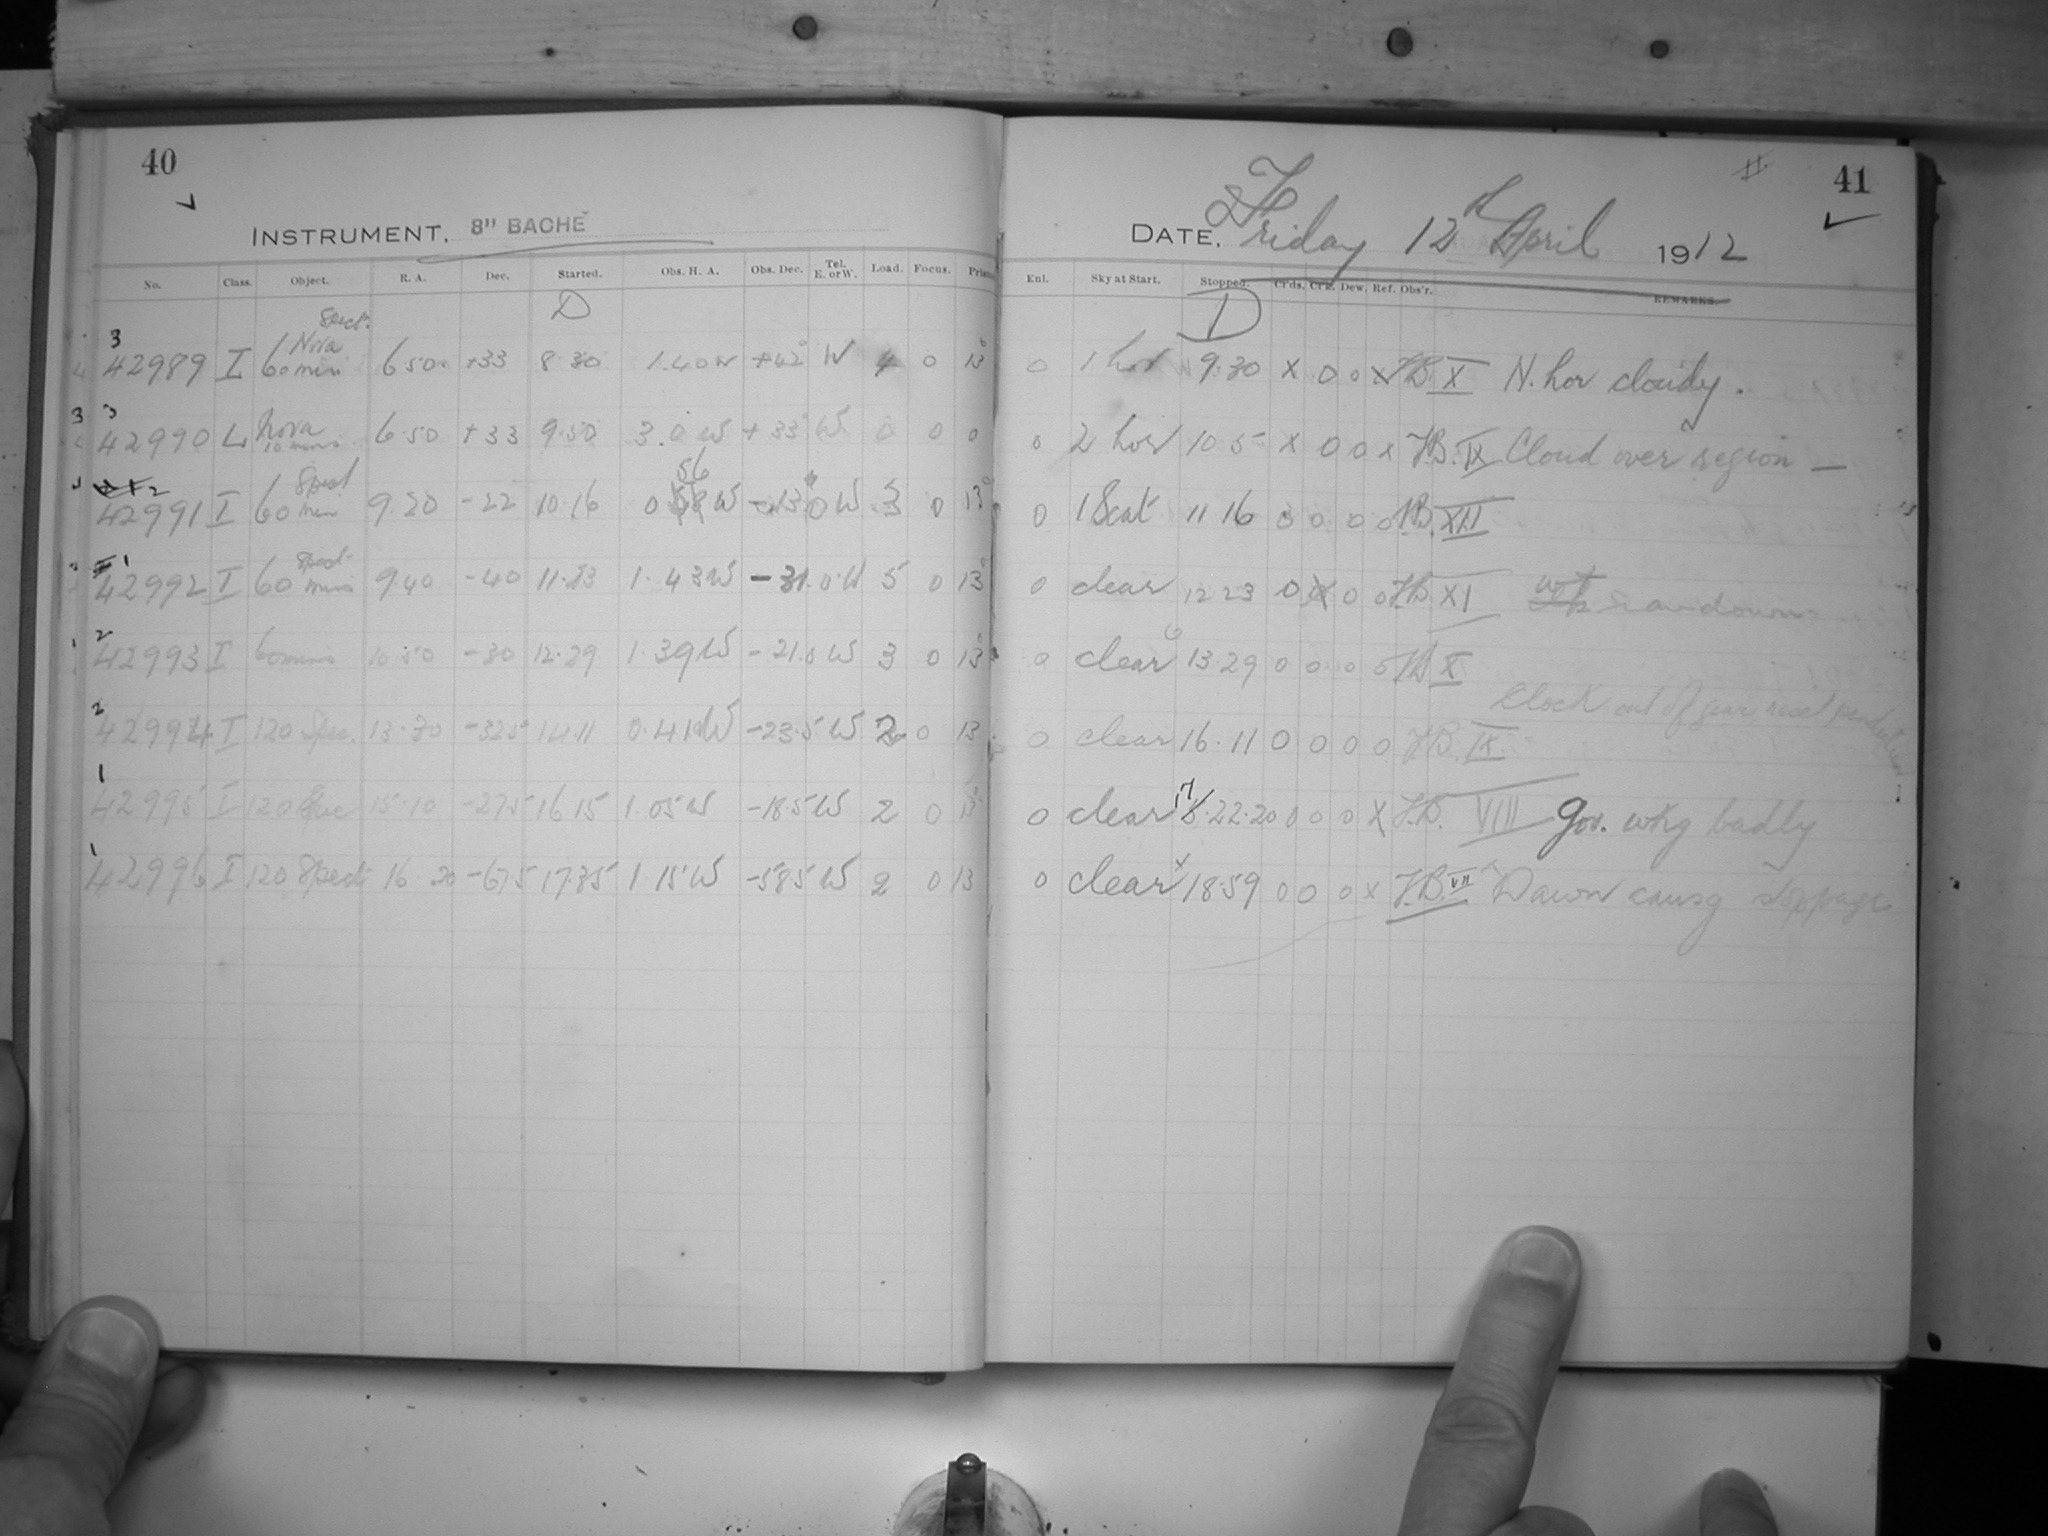 40
✓
INSTRUMENT. 8" BACHE
No. Class. Object. R. A. Dec. Started. Obs. H. A. Obs. Dec. Tel. E. or W. Load. Focus. Prism
D
3 Spect.
42989 I Nova 60 min 6 50 +33 8 30 1.40 W +42° W 4 0 13°
3 3
42990 L Nova 10 mins 6 50 +33 9.50 3.0 W +33° W 0 0 0
2 Spect 56
42991 I 60 min 9.20 -22 10.16 0 W -13 0 W 3 0 13°
1 Spect
42992 I 60 mins 9.40 -40 11.23 1.43 W -31.0 W 5 0 13°
2
42993 I 60 mins 10.50 -30 12.29 1.39 W -21.0 W 3 0 13°
2
42994 I 120 Spec. 13.30 -32.5 14.11 0.41 W -23.5 W 2 0 13
1
42995 I 120 Spec 15.10 -27.5 16 15 1.05 W -18.5 W 2 0 13
1
42996 I 120 Spect 16 20 -67.5 17.35 1.15 W -58.5 W 2 0 13
41
✓
DATE. Friday 12th April 1912
Enl. Sky at Start. Stopped. Cl'ds. Clk. Dew. Ref. Obs'r. REMARKS.
D
0 1 hor 9.30 x 0 0 x J.B. X N. hor cloudy.
0 2 hor 10 5 x 0 0 x J.B. IX Cloud over region —
0 1 Scat 11 16 0 0 0 0 J.B. XII
0 clear 12 23 0 x 0 0 J.B. XI wt ran down
0 clear 13.29 0 0 0 0 J.B. X
Clock out of gear, reset pendulum
0 clear 16.11 0 0 0 0 J.B. IX
0 clear 17.22.20 0 0 0 x J.B. VIII Gov. wkg badly
0 clear x 18.59 0 0 0 x J.B. VII Dawn causg stoppage